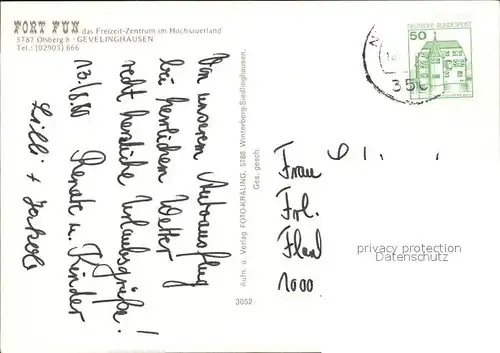 FORT FUN das Freizeit-Zentrum im Hochsauerland
5787 Olsberg 8 - GEVELINGHAUSEN
Tel.: (02905) 666
DEUTSCHE BUNDESPOST
50
35
Von unserem Autoausflug
bei herrlichem Wetter
recht herzliche Urlaubsgrüße!
13.6.80 Renate u. Kinder
Lilli + Jakob
Aufn. u. Verlag FOTO-KRALING, 5788 Winterberg-Siedlinghausen.
Ges. gesch.
3052
Frau
Frl.
1000
privacy protection
Datenschutz